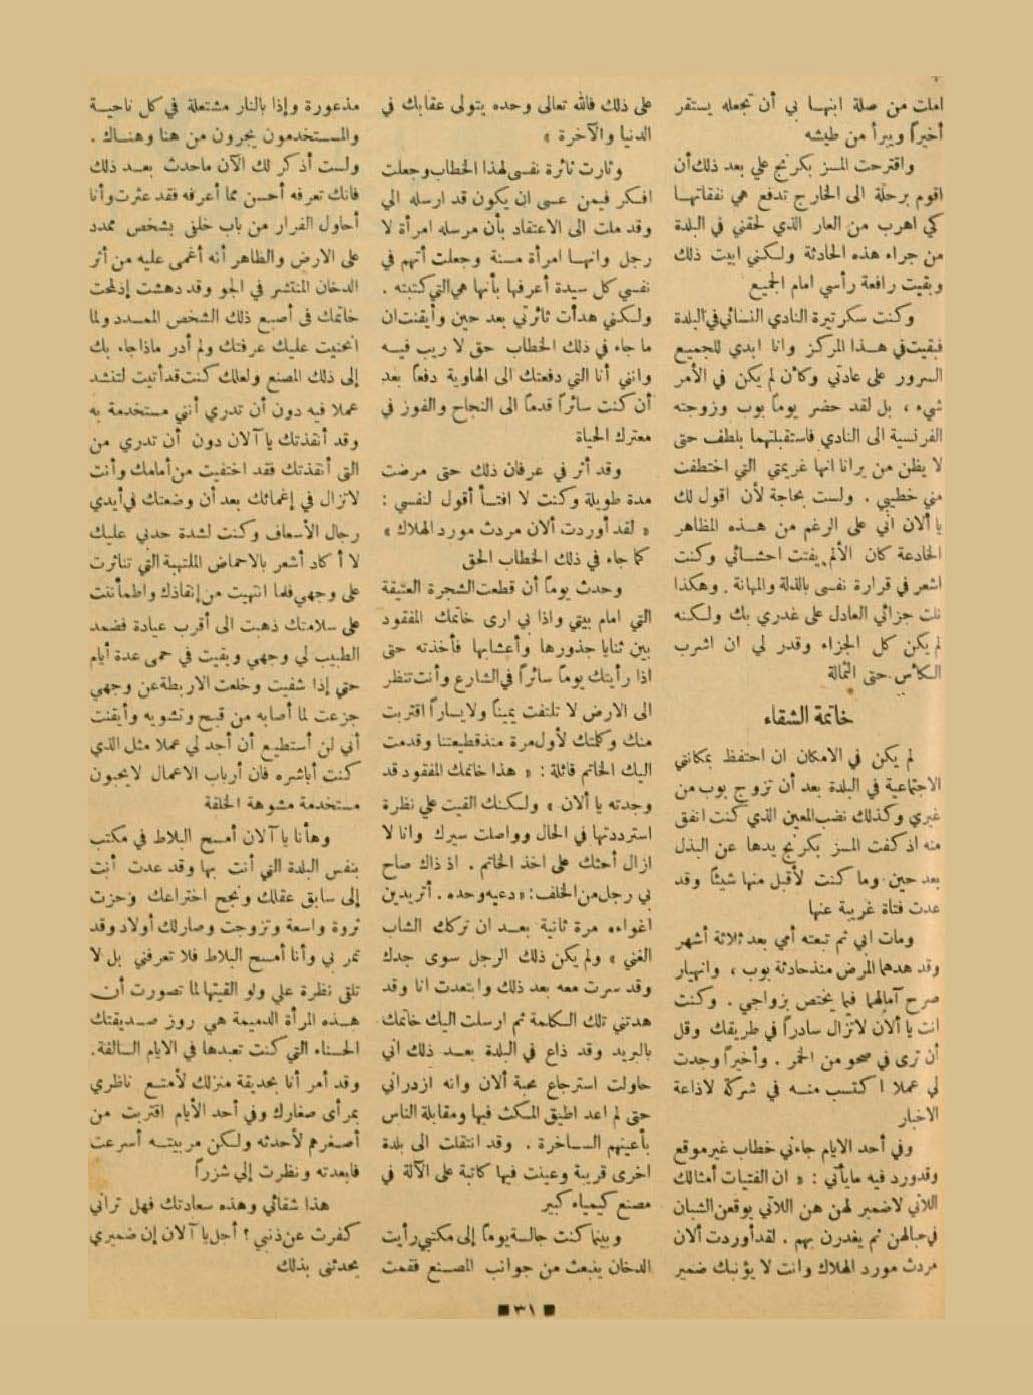 املت من صلة ابنهـا بي أن تجعله يستقر
أخيراً ويبرأ من طيشه
واقترحت المسز بكرنج علي بعد ذلك أن
اقوم برحلة الى الخارج تدفع هي نفقاتهـا
كي اهرب من العار الذي لحقني في البلدة
من جراء هذه الحادثة ولكني ابيت ذلك
وبقيت رافعة رأسي امام الجميع
وكنت سكرتيرة النادي النسائي في البلدة
فبقيت في هـذا المركز وانا ابدي للجميع
السرور على عادتي وكأن لم يكن في الأمر
شيء ، بل لقد حضر يوماً بوب وزوجته
الفرنسية الى النادي فاستقبلتهما بلطف حتى
لا يظن من يرانا انها غريمتي التي اختطفت
مني خطيبي . ولست بحاجة لأن اقول لك
يا ألان اني على الرغم من هـذه المظاهر
الخادعة كان الألم يفتت احشائي وكنت
اشعر في قرارة نفسى بالذلة والمهانة . وهكذا
نلت جزائي العادل على غدري بك ولكنه
لم يكن كل الجزاء وقدر لي ان اشرب
الكأس حتى الثمالة
خاتمة الشقاء
لم يكن في الامكان ان احتفظ بمكانتي
الاجتماعية في البلدة بعد أن تزوج بوب من
غيري وكذلك نضب المعين الذي كنت انفق
منه اذ كفت المسز بكرنج يدها عن البذل
بعد حين وما كنت لأقبل منها شيئاً وقد
عدت فتاة غريبة عنها
ومات ابي ثم تبعته أمي بعد ثلاثة أشهر
وقد هدهما المرض منذ حادثة بوب ، وانهيار
صرح آمالهما فيما يختص بزواجي . وكنت
انت يا ألان لاتزال سادراً في طريقك وقل
أن ترى في صحو من الخمر . وأخيراً وجدت
لي عملا اكتسب منـه في شركة لاذاعة
الاخبار
وفي أحد الايام جاءني خطاب غير موقع
وقدورد فيه مايأتي : « ان الفتيات أمثالك
اللاتي لاضمير لهن هن اللاتي يوقعن الشبان
في حبالهن ثم يغدرن بهم . لقد أوردت ألان
مردث مورد الهلاك وانت لا يؤنبك ضمير
على ذلك فالله تعالى وحده يتولى عقابك في
الدنيا والآخرة »
وثارت ثائرة نفسى لهذا الخطاب وجعلت
افكر فيمن عسى ان يكون قد ارسله الي
وقد ملت الى الاعتقاد بأن مرسله امرأة لا
رجل وانهـا امرأة مسنة وجعلت أتهم في
نفسي كل سيدة أعرفها بأنها هي التي كتبته .
ولكني هدأت ثائرتي بعد حين وأيقنت ان
ما جاء في ذلك الخطاب حق لا ريب فيـه
وانني أنا التي دفعتك الى الهاوية دفعاً بعد
أن كنت سائراً قدماً الى النجاح والفوز في
معترك الحياة
وقد أثر في عرفان ذلك حتى مرضت
مدة طويلة وكنت لا افتـأ أقول لنفسي :
« لقد أوردت ألان مردث مورد الهلاك »
كما جاء في ذلك الخطاب الحق
وحدث يوماً أن قطعت الشجرة العتيقة
التي امام بيتي واذا بي ارى خاتمك المفقود
بين ثنايا جذورها وأعشابها فأخذته حتى
اذا رأيتك يوماً سائراً في الشارع وأنت تنظر
الى الارض لا تلتفت يميناً ولا يساراً اقتربت
منك وكلمتك لأول مرة منذ قطيعتنا وقدمت
اليك الخاتم قائلة : « هذا خاتمك المفقود قد
وجدته يا ألان » ولكنك القيت علي نظرة
استرددتها في الحال وواصلت سيرك وانا لا
ازال أحثك على اخذ الخاتم . اذ ذاك صاح
بي رجل من الخلف : « دعيه وحده . أتريدين
اغواءه مرة ثانية بعـد ان تركك الشاب
الغني » ولم يكن ذلك الرجل سوى جدك
وقد سرت معه بعد ذلك وابتعدت انا وقد
هدتني تلك الكلمة ثم ارسلت اليك خاتمك
بالبريد وقد ذاع في البلدة بعـد ذلك اني
حاولت استرجاع محبة ألان وانه ازدراني
حتى لم اعد اطيق المكث فيها ومقابلة الناس
بأعينهم السـاخرة . وقد انتقلت الى بلدة
اخرى قريبة وعينت فيها كاتبة على الآلة في
مصنع كيمياء كبير
وبينما كنت جالسة يوماً إلى مكتبي رأيت
الدخان ينبعث من جوانب المصنع فقمت
مذعورة وإذا بالنار مشتعلة في كل ناحيـة
والمـستخدمون يجرون من هنا وهنـاك .
ولست أذكر لك الآن ماحدث بعـد ذلك
فانك تعرفه أحسن مما أعرفه فقد عثرت وأنا
أحاول الفرار من باب خلفي بشخص ممدد
على الارض والظاهر أنه أغمى عليه من أثر
الدخان المنتشر في الجو وقد دهشت إذ لمحت
خاتمك فى أصبع ذلك الشخص الممـدد ولما
انحنيت عليك عرفتك ولم أدر ماذا جاء بك
إلى ذلك المصنع ولعلك كنت قد أتيت لتنشد
عملا فيه دون أن تدري أنني مستخدمة به
وقد أنقذتك يا آلان دون أن تدري من
التى أنقذتك فقد اختفيت من أمامك وأنت
لاتزال في إغمائك بعد أن وضعتك في أيدي
رجال الأسعاف وكنت لشدة حدبي عليك
لا أكاد أشعر بالاحماض الملتهبة التي تناثرت
على وجهي فلما انتهيت من إنقاذك واطمأننت
على سلامتك ذهبت الى أقرب عيادة فضمد
الطبيب لي وجهي وبقيت في حمى عدة أيام
حتي إذا شفيت وخلعت الاربطة عن وجهي
جزعت لما أصابه من قبح وتشويه وأيقنت
أني لن أستطيع أن أجد لي عملا مثل الذي
كنت أباشره فان أرباب الاعمال لايحبون
مستخدمة مشوهة الخلقة
وهأنا يا آلان أمسح البلاط في مكتب
بنفس البلدة التي أنت بها وقد عدت أنت
إلى سابق عقلك ونجح اختراعك وحزت
ثروة واسعة وتزوجت وصار لك أولاد وقد
تمر بي وأنا أمسح البلاط فلا تعرفني بل لا
تلقى نظرة علي ولو القيتها لما تصورت أن
هـذه المرأة الدميمة هي روز صـديقتك
الحسناء التي كنت تعبدها في الايام السالفة.
وقد أمر أنا بحديقة منزلك لأمتع ناظري
بمرأى صغارك وفي أحد الأيام اقتربت من
أصغرهم لأحدثه ولكن مربيتـه أسرعت
فابعدته ونظرت إلي شزراً
هذا شقائي وهذه سعادتك فهل تراني
كفرت عن ذنبي ؟ أجل يا آلان إن ضميري
يحدثنى بذلك
■ ٣١ ■